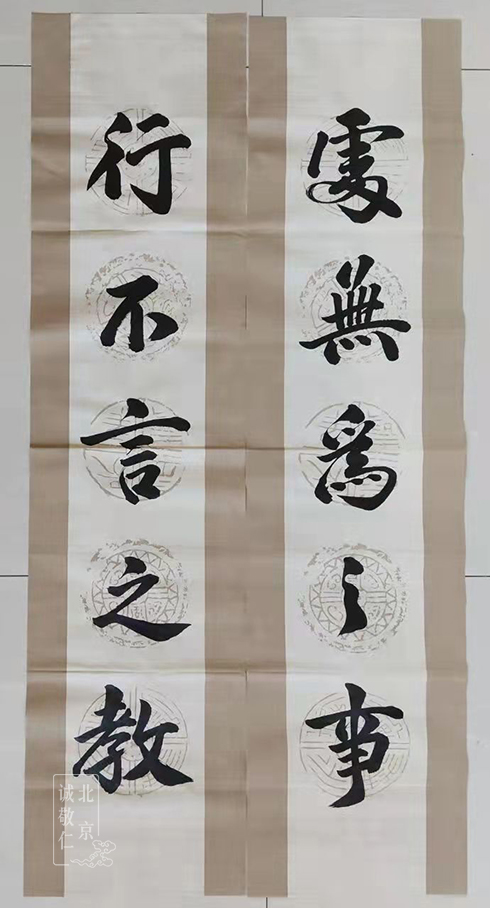 處無爲之事
行不言之教
北京
诚敬仁